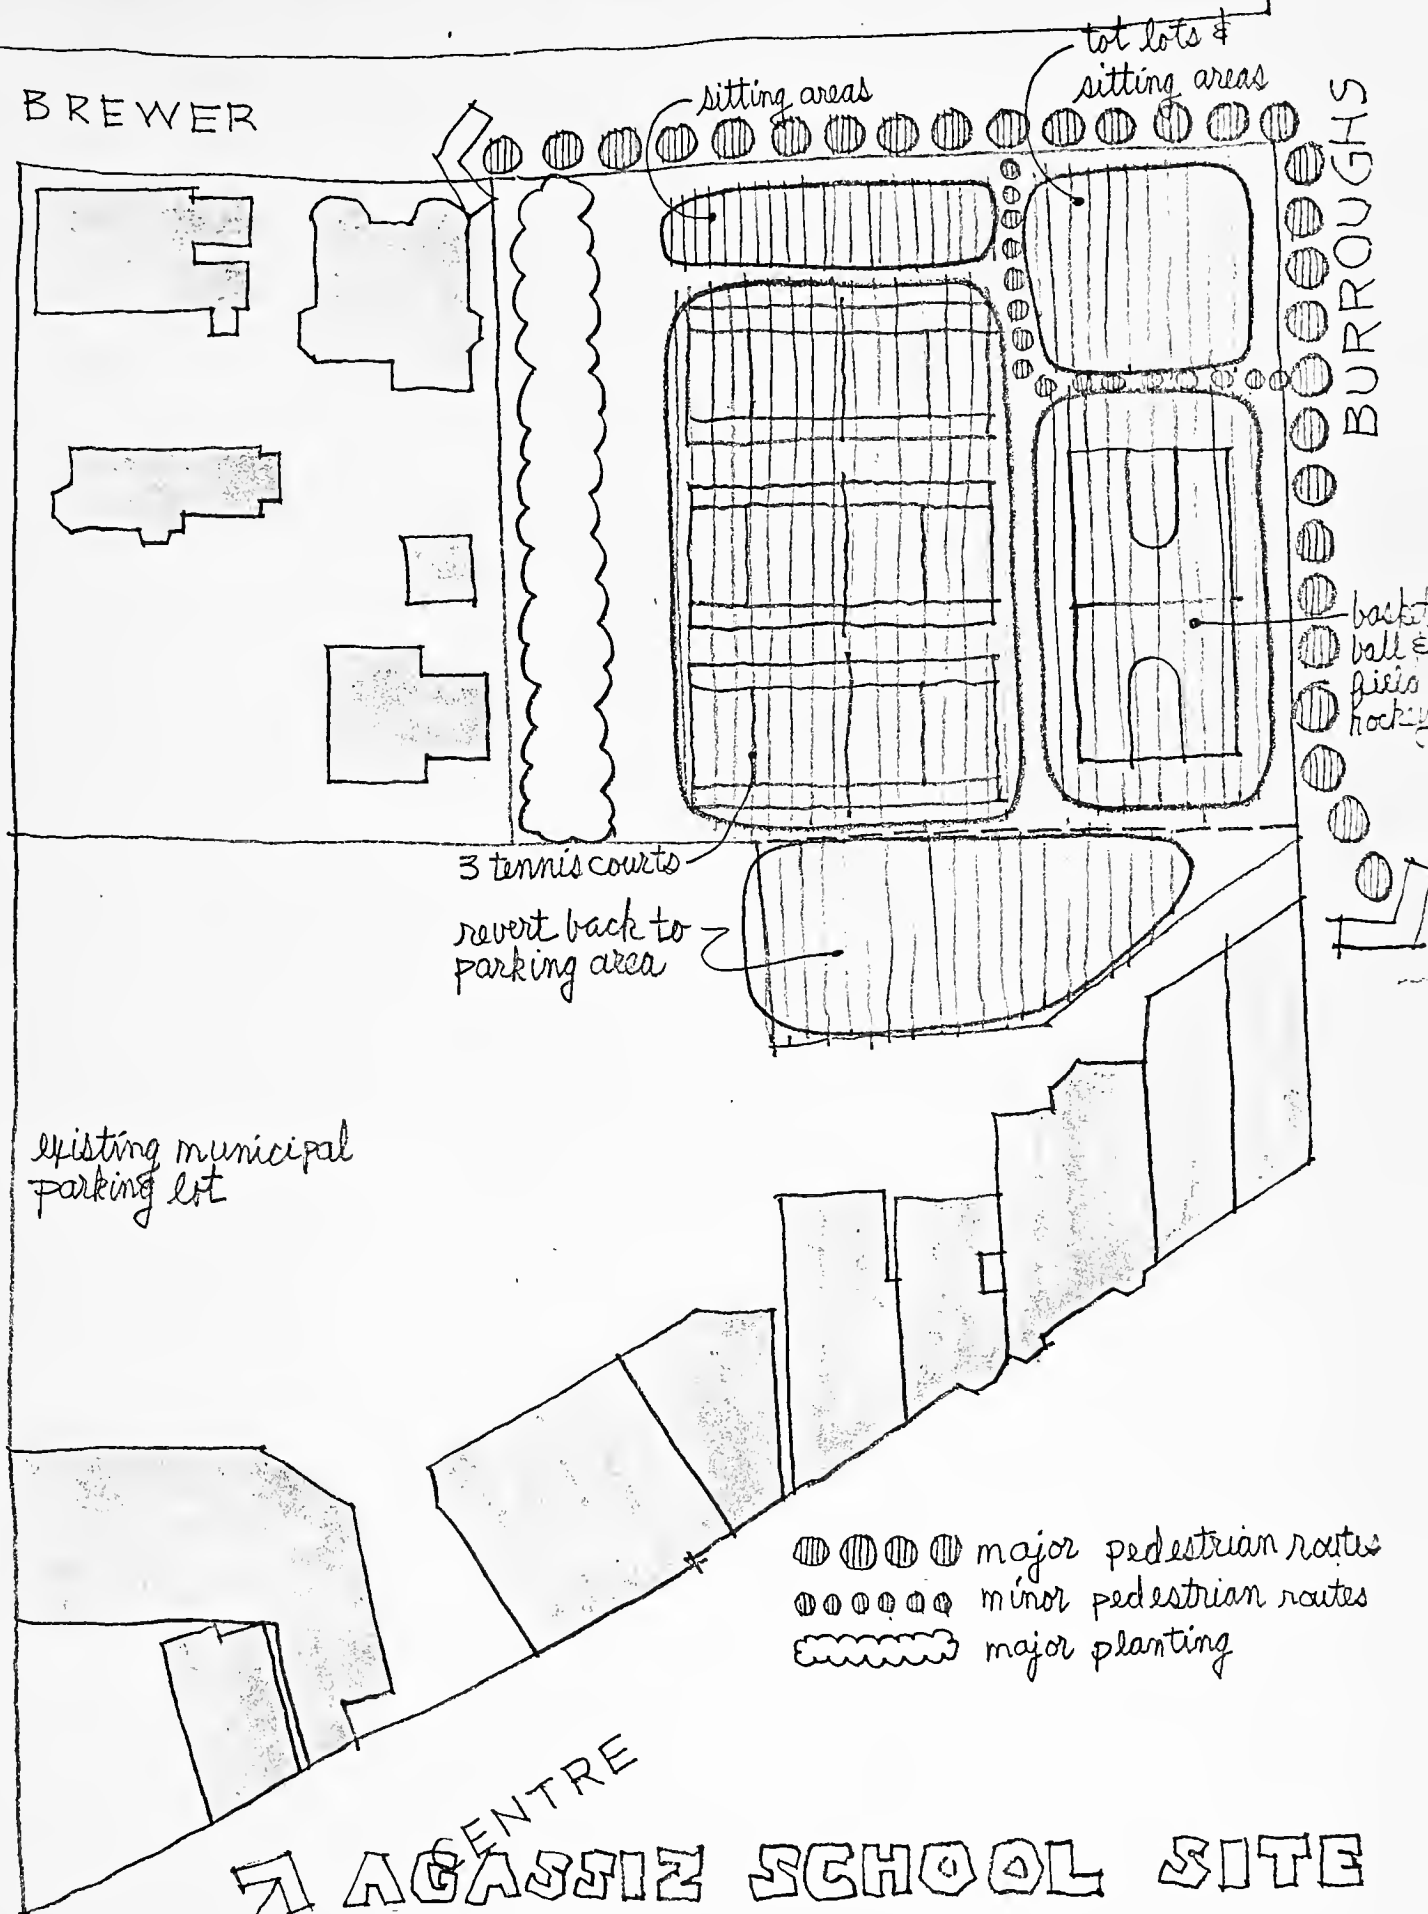 BREWER
sitting areas
tot lots &
sitting areas
BURROUGHS
ball &
field
hockey
3 tennis courts
revert back to
parking area
existing municipal
parking lot
major pedestrian routes
minor pedestrian routes
major planting
CENTRE
AGASSIZ SCHOOL SITE